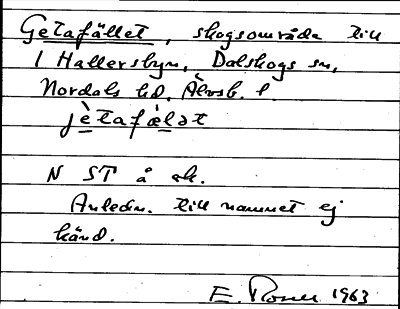 Getafället, skogsområde till
1 Hallersbyn, Dalskogs sn,
Nordals hd. Älvsb. l.
jètafæ̀lət
N ST å ek.
Anledn. till namnet ej
känd.
E. 1963